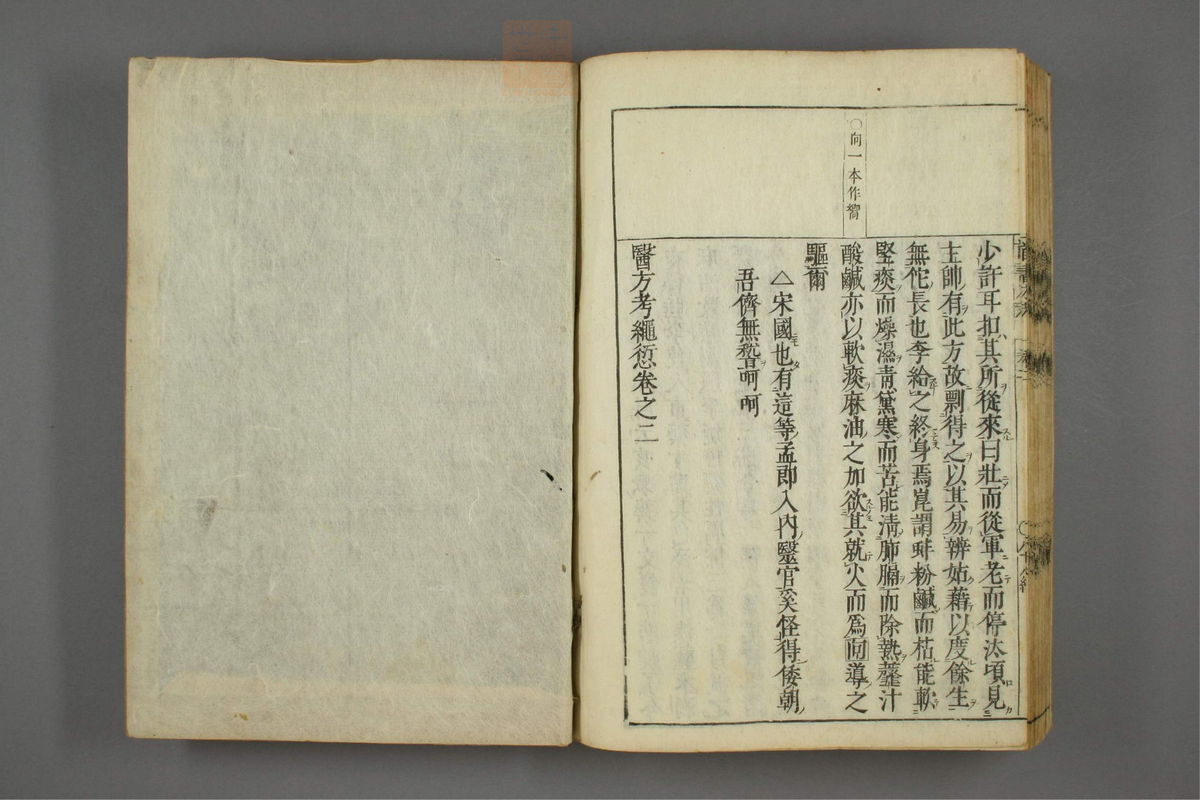 ○向一本作嚮
少許耳扣其所從來曰壯而從軍老而停汰頃見
主帥有此方故剽得之以其易辨姑藉以度餘生
無佗長也李給之終身焉崑謂蚌粉鹹而枯能軟
堅痰而燥濕青黛寒而苦能淸肺膈而除熱虀汁
酸鹹亦以軟痰麻油之加欲其就火而爲向導之
驅爾
△宋國也有這等孟即入內醫官奚怪得倭朝
吾儕無瞀呵呵
醫方考繩愆卷之二